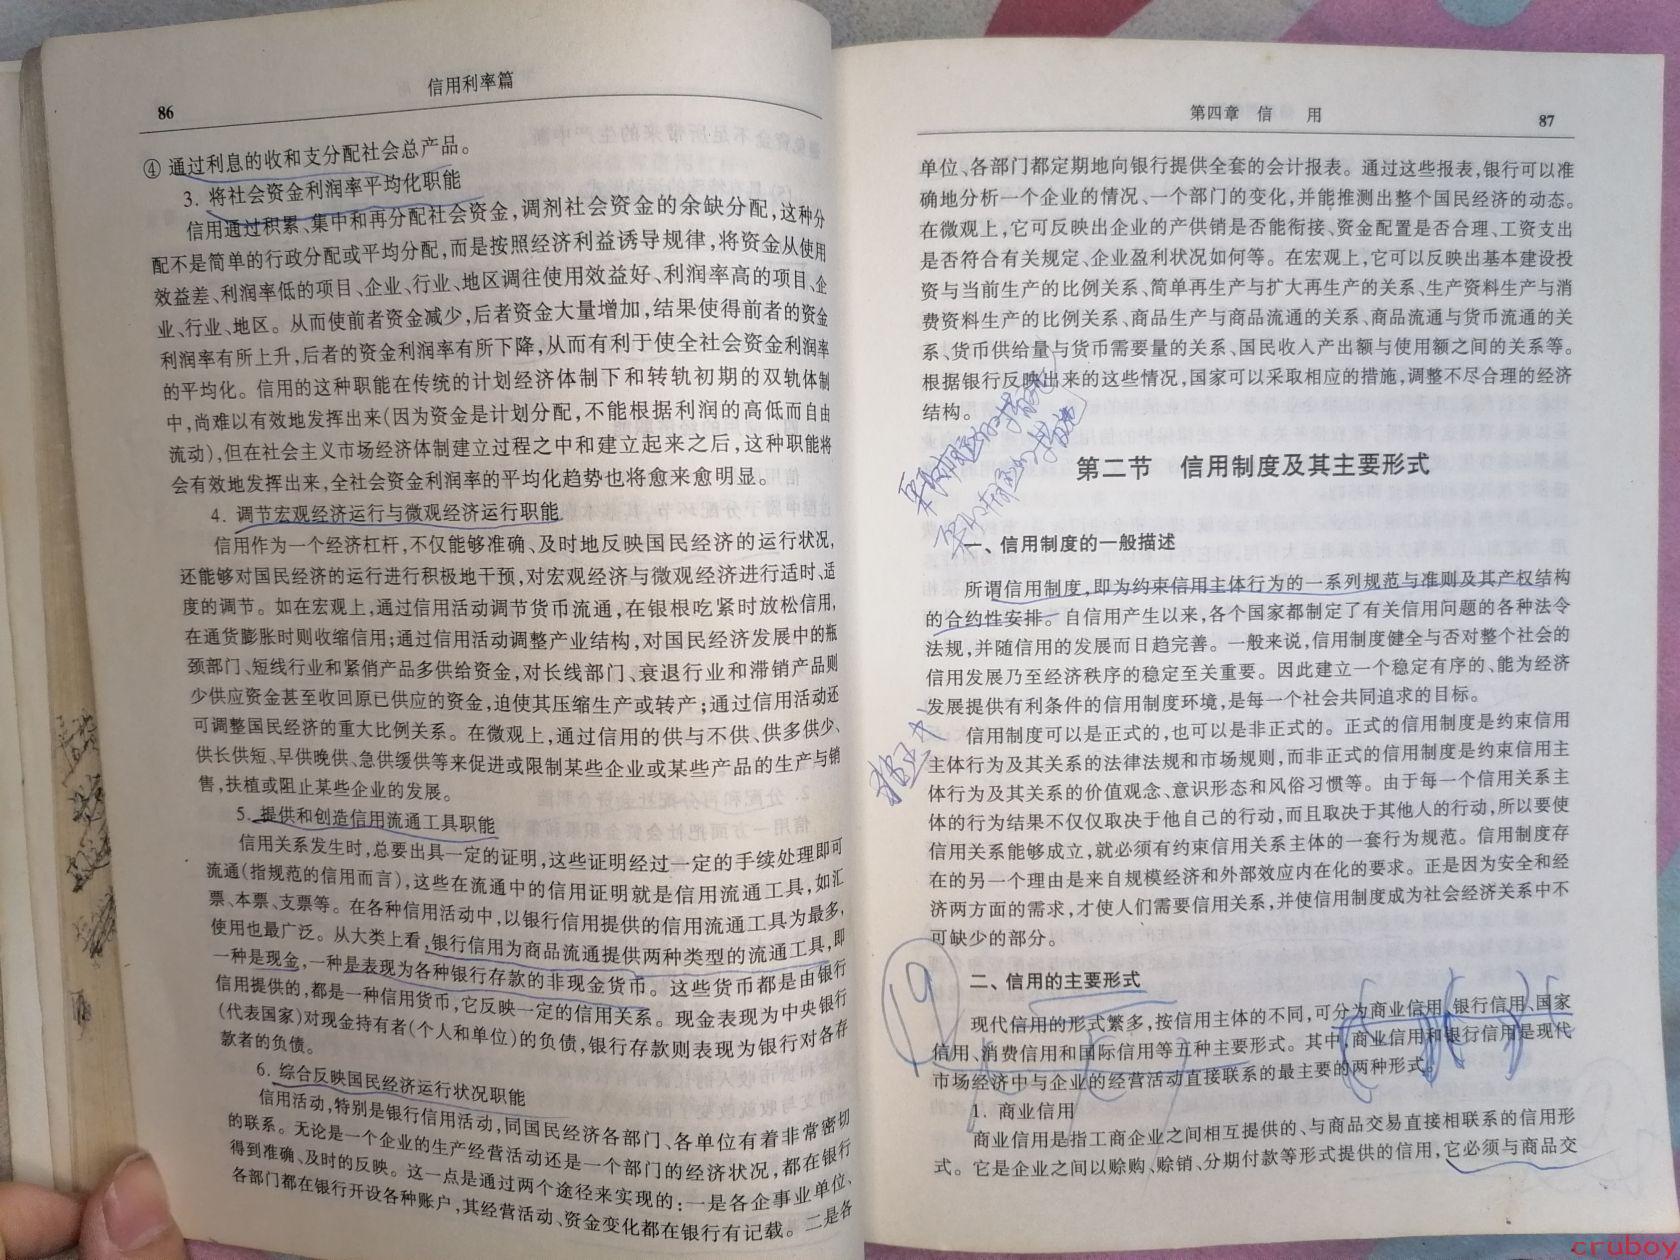 86
信用利率篇
④ 通过利息的收和支分配社会总产品。
3. 将社会资金利润率平均化职能
信用通过积累、集中和再分配社会资金,调剂社会资金的余缺分配,这种分
配不是简单的行政分配或平均分配,而是按照经济利益诱导规律,将资金从使用
效益差、利润率低的项目、企业、行业、地区调往使用效益好、利润率高的项目、企
业、行业、地区。从而使前者资金减少,后者资金大量增加,结果使得前者的资金
利润率有所上升,后者的资金利润率有所下降,从而有利于使全社会资金利润率
的平均化。信用的这种职能在传统的计划经济体制下和转轨初期的双轨体制
中,尚难以有效地发挥出来(因为资金是计划分配,不能根据利润的高低而自由
流动),但在社会主义市场经济体制建立过程之中和建立起来之后,这种职能将
会有效地发挥出来,全社会资金利润率的平均化趋势也将愈来愈明显。
4. 调节宏观经济运行与微观经济运行职能
信用作为一个经济杠杆,不仅能够准确、及时地反映国民经济的运行状况,
还能够对国民经济的运行进行积极地干预,对宏观经济与微观经济进行适时、适
度的调节。如在宏观上,通过信用活动调节货币流通,在银根吃紧时放松信用,
在通货膨胀时则收缩信用;通过信用活动调整产业结构,对国民经济发展中的瓶
颈部门、短线行业和紧俏产品多供给资金,对长线部门、衰退行业和滞销产品则
少供应资金甚至收回原已供应的资金,迫使其压缩生产或转产;通过信用活动还
可调整国民经济的重大比例关系。在微观上,通过信用的供与不供、供多供少、
供长供短、早供晚供、急供缓供等来促进或限制某些企业或某些产品的生产与销
售,扶植或阻止某些企业的发展。
5. 提供和创造信用流通工具职能
信用关系发生时,总要出具一定的证明,这些证明经过一定的手续处理即可
流通(指规范的信用而言),这些在流通中的信用证明就是信用流通工具,如汇
票、本票、支票等。在各种信用活动中,以银行信用提供的信用流通工具为最多,
使用也最广泛。从大类上看,银行信用为商品流通提供两种类型的流通工具,即
一种是现金,一种是表现为各种银行存款的非现金货币。这些货币都是由银行
信用提供的,都是一种信用货币,它反映一定的信用关系。现金表现为中央银行
(代表国家)对现金持有者(个人和单位)的负债,银行存款则表现为银行对各存
款者的负债。
6. 综合反映国民经济运行状况职能
信用活动,特别是银行信用活动,同国民经济各部门、各单位有着非常密切
的联系。无论是一个企业的生产经营活动还是一个部门的经济状况,都在银行
得到准确、及时的反映。这一点是通过两个途径来实现的:一是各企事业单位、
各部门都在银行开设各种账户,其经营活动、资金变化都在银行有记载。二是各
第四章 信 用
87
单位、各部门都定期地向银行提供全套的会计报表。通过这些报表,银行可以准
确地分析一个企业的情况、一个部门的变化,并能推测出整个国民经济的动态。
在微观上,它可反映出企业的产供销是否能衔接、资金配置是否合理、工资支出
是否符合有关规定、企业盈利状况如何等。在宏观上,它可以反映出基本建设投
资与当前生产的比例关系、简单再生产与扩大再生产的关系、生产资料生产与消
费资料生产的比例关系、商品生产与商品流通的关系、商品流通与货币流通的关
系、货币供给量与货币需要量的关系、国民收入产出额与使用额之间的关系等。
根据银行反映出来的这些情况,国家可以采取相应的措施,调整不尽合理的经济
结构。
第二节 信用制度及其主要形式
一、信用制度的一般描述
所谓信用制度,即为约束信用主体行为的一系列规范与准则及其产权结构
的合约性安排。自信用产生以来,各个国家都制定了有关信用问题的各种法令
法规,并随信用的发展而日趋完善。一般来说,信用制度健全与否对整个社会的
信用发展乃至经济秩序的稳定至关重要。因此建立一个稳定有序的、能为经济
发展提供有利条件的信用制度环境,是每一个社会共同追求的目标。
信用制度可以是正式的,也可以是非正式的。正式的信用制度是约束信用
主体行为及其关系的法律法规和市场规则,而非正式的信用制度是约束信用主
体行为及其关系的价值观念、意识形态和风俗习惯等。由于每一个信用关系主
体的行为结果不仅仅取决于他自己的行动,而且取决于其他人的行动,所以要使
信用关系能够成立,就必须有约束信用关系主体的一套行为规范。信用制度存
在的另一个理由是来自规模经济和外部效应内在化的要求。正是因为安全和经
济两方面的需求,才使人们需要信用关系,并使信用制度成为社会经济关系中不
可缺少的部分。
19
二、信用的主要形式
现代信用的形式繁多,按信用主体的不同,可分为商业信用、银行信用、国家
信用、消费信用和国际信用等五种主要形式。其中,商业信用和银行信用是现代
市场经济中与企业的经营活动直接联系的最主要的两种形式。
1. 商业信用
商业信用是指工商企业之间相互提供的、与商品交易直接相联系的信用形
式。它是企业之间以赊购、赊销、分期付款等形式提供的信用,它必须与商品交
cruboy